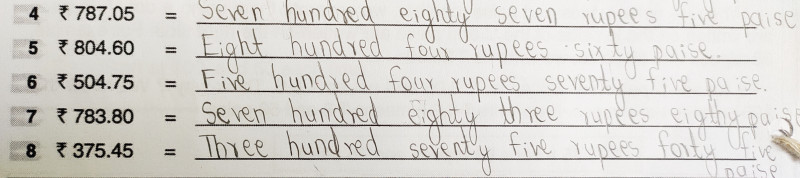 4 ₹ 787.05 = Seven hundred eighty seven rupees five paise
5 ₹ 804.60 = Eight hundred four rupees sixty paise.
6 ₹ 504.75 = Five hundred four rupees seventy five paise.
7 ₹ 783.80 = Seven hundred eighty three rupees eigthy paise
8 ₹ 375.45 = Three hundred seventy five rupees forty five
paise